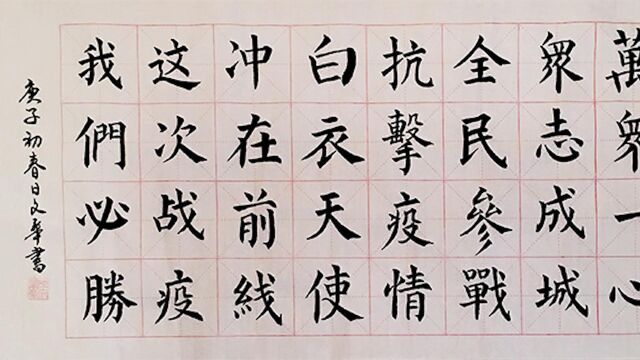 萬眾一心
眾志成城
全民參戰
抗擊疫情
白衣天使
冲在前綫
这次战疫
我們必勝
庚子初春日文華書